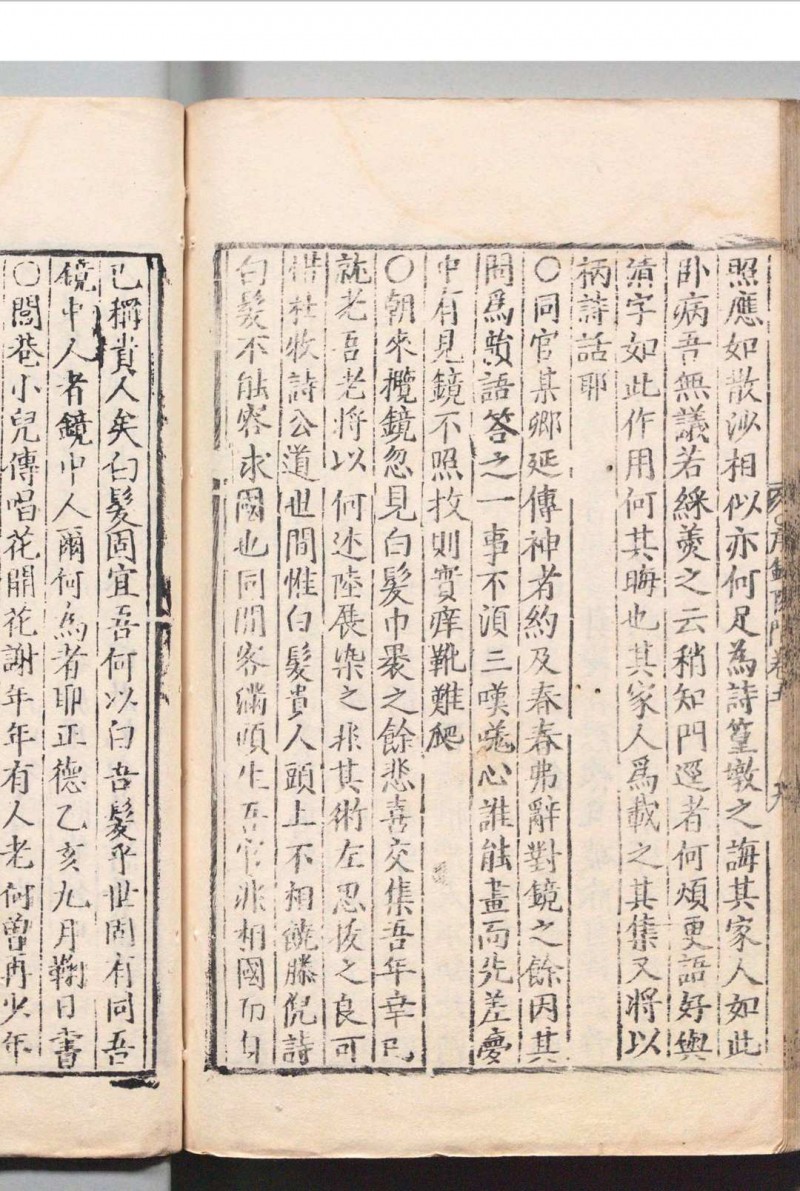 照應如散沙相似亦何足為詩篁墩之誨其家人如此
卧病吾無議若綵羹之云稍知門逕者何煩更語好與
漬字如此作用何其晦也其家人爲載之其集又將以
柄詩話耶
〇同官某鄉延傳神者約及春春弗辭對鏡之餘因其
問爲數語答之一事不須三嘆心誰能畫而先差慶
中有見鏡不照技則實痒靴難爬
〇朝來攬鏡忽見白髮巾裹之餘悲喜交集吾年幸已
老吾老將以何述陸展染之非其術左思拔之良可
惜杜牧詩公道世間惟白髮貴人頭上不相饒滕倪詩
白髮不能容求國也同閒客滿頭生吾官非相國而身
已稱貴人矣白髮固宜吾何以白吾髮乎世固有同吾
鏡中人者鏡中人爾何為者耶正德乙亥九月鞠日書
〇閭巷小兒傳唱花開花謝年年有人老何曾再少年